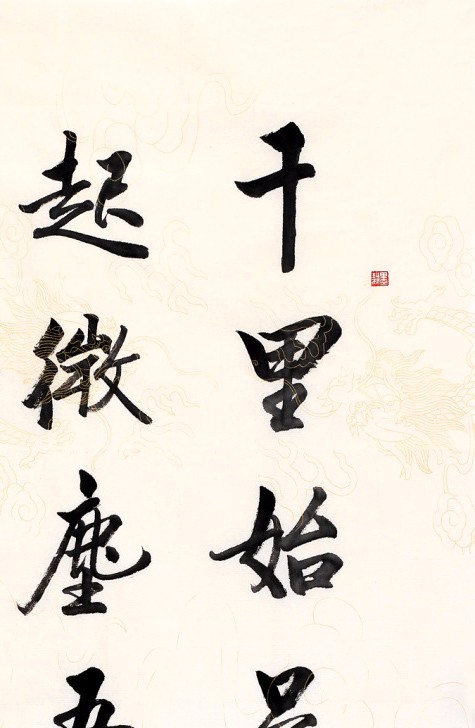 千里始
起微塵